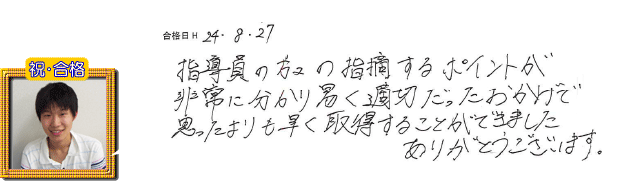 合格日 H 24・8・27
祝・合格
指導員の方々の指摘するポイントが
非常に分かり易く適切だったおかげで
思ったよりも早く取得することができました
ありがとうございます。